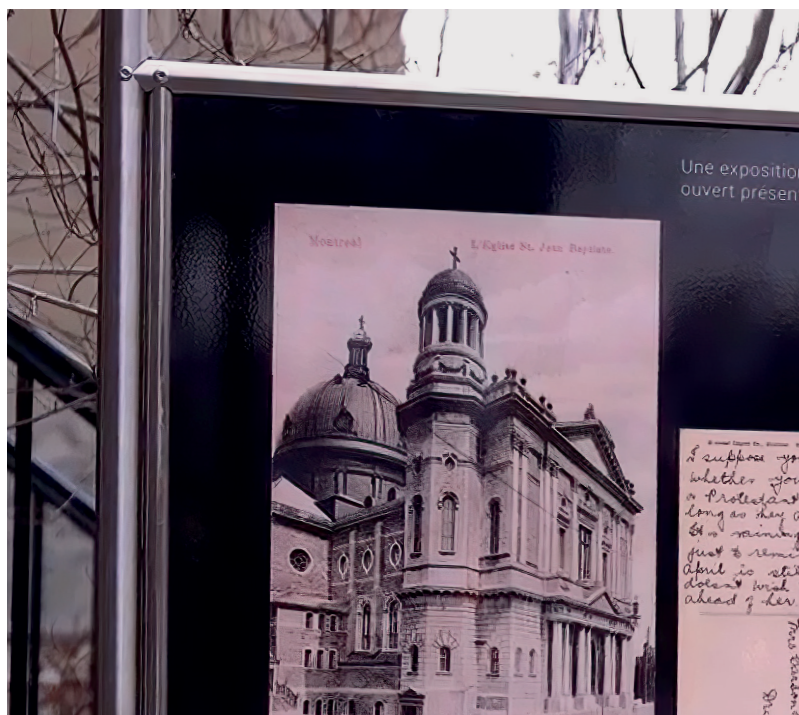 Une exposition
ouvert présen
Montreal
L'Eglise St. Jean Baptiste.
I suppose yo
whether you
a Protestant
long as they
It's raining
just to remi
april is stil
doesn't wish
ahead of her.
Mrs